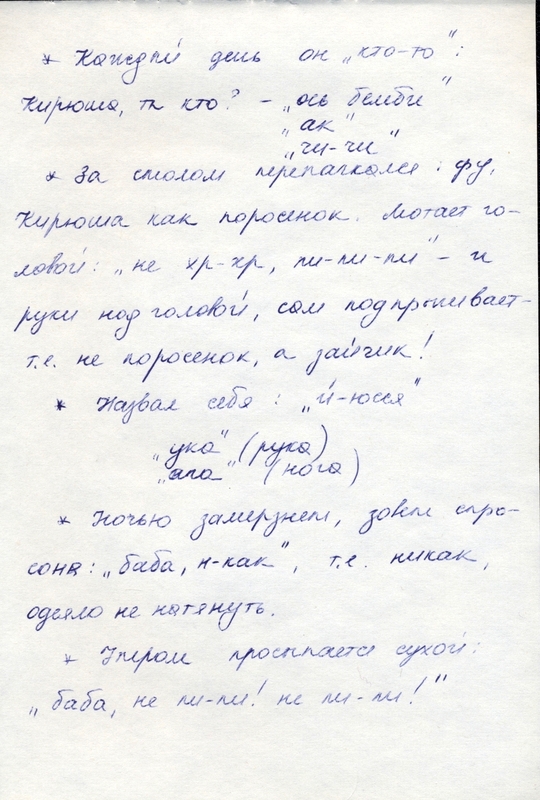 * Каждый день он „кто-то":
Кирюша, ты кто? – „ось бемби"
„ак"
„чи-чи"
* За столом перепачкался: фу,
Кирюша как поросенок. Мотает го-
ловой: „не хр-хр, пи-пи-пи" – и
руки над головой, сам подпрыгивает –
т.е. не поросенок, а зайчик!
* Назвал себя: „Й-юсся"
„ука" (рука)
„ага" (нога)
* Ночью замерзнет, зовет спро-
сона: „баба, н-как", т.е. никак,
одеяло не натянуть.
* Утром просыпается сухой:
„баба, не пи-пи! не пи-пи!"